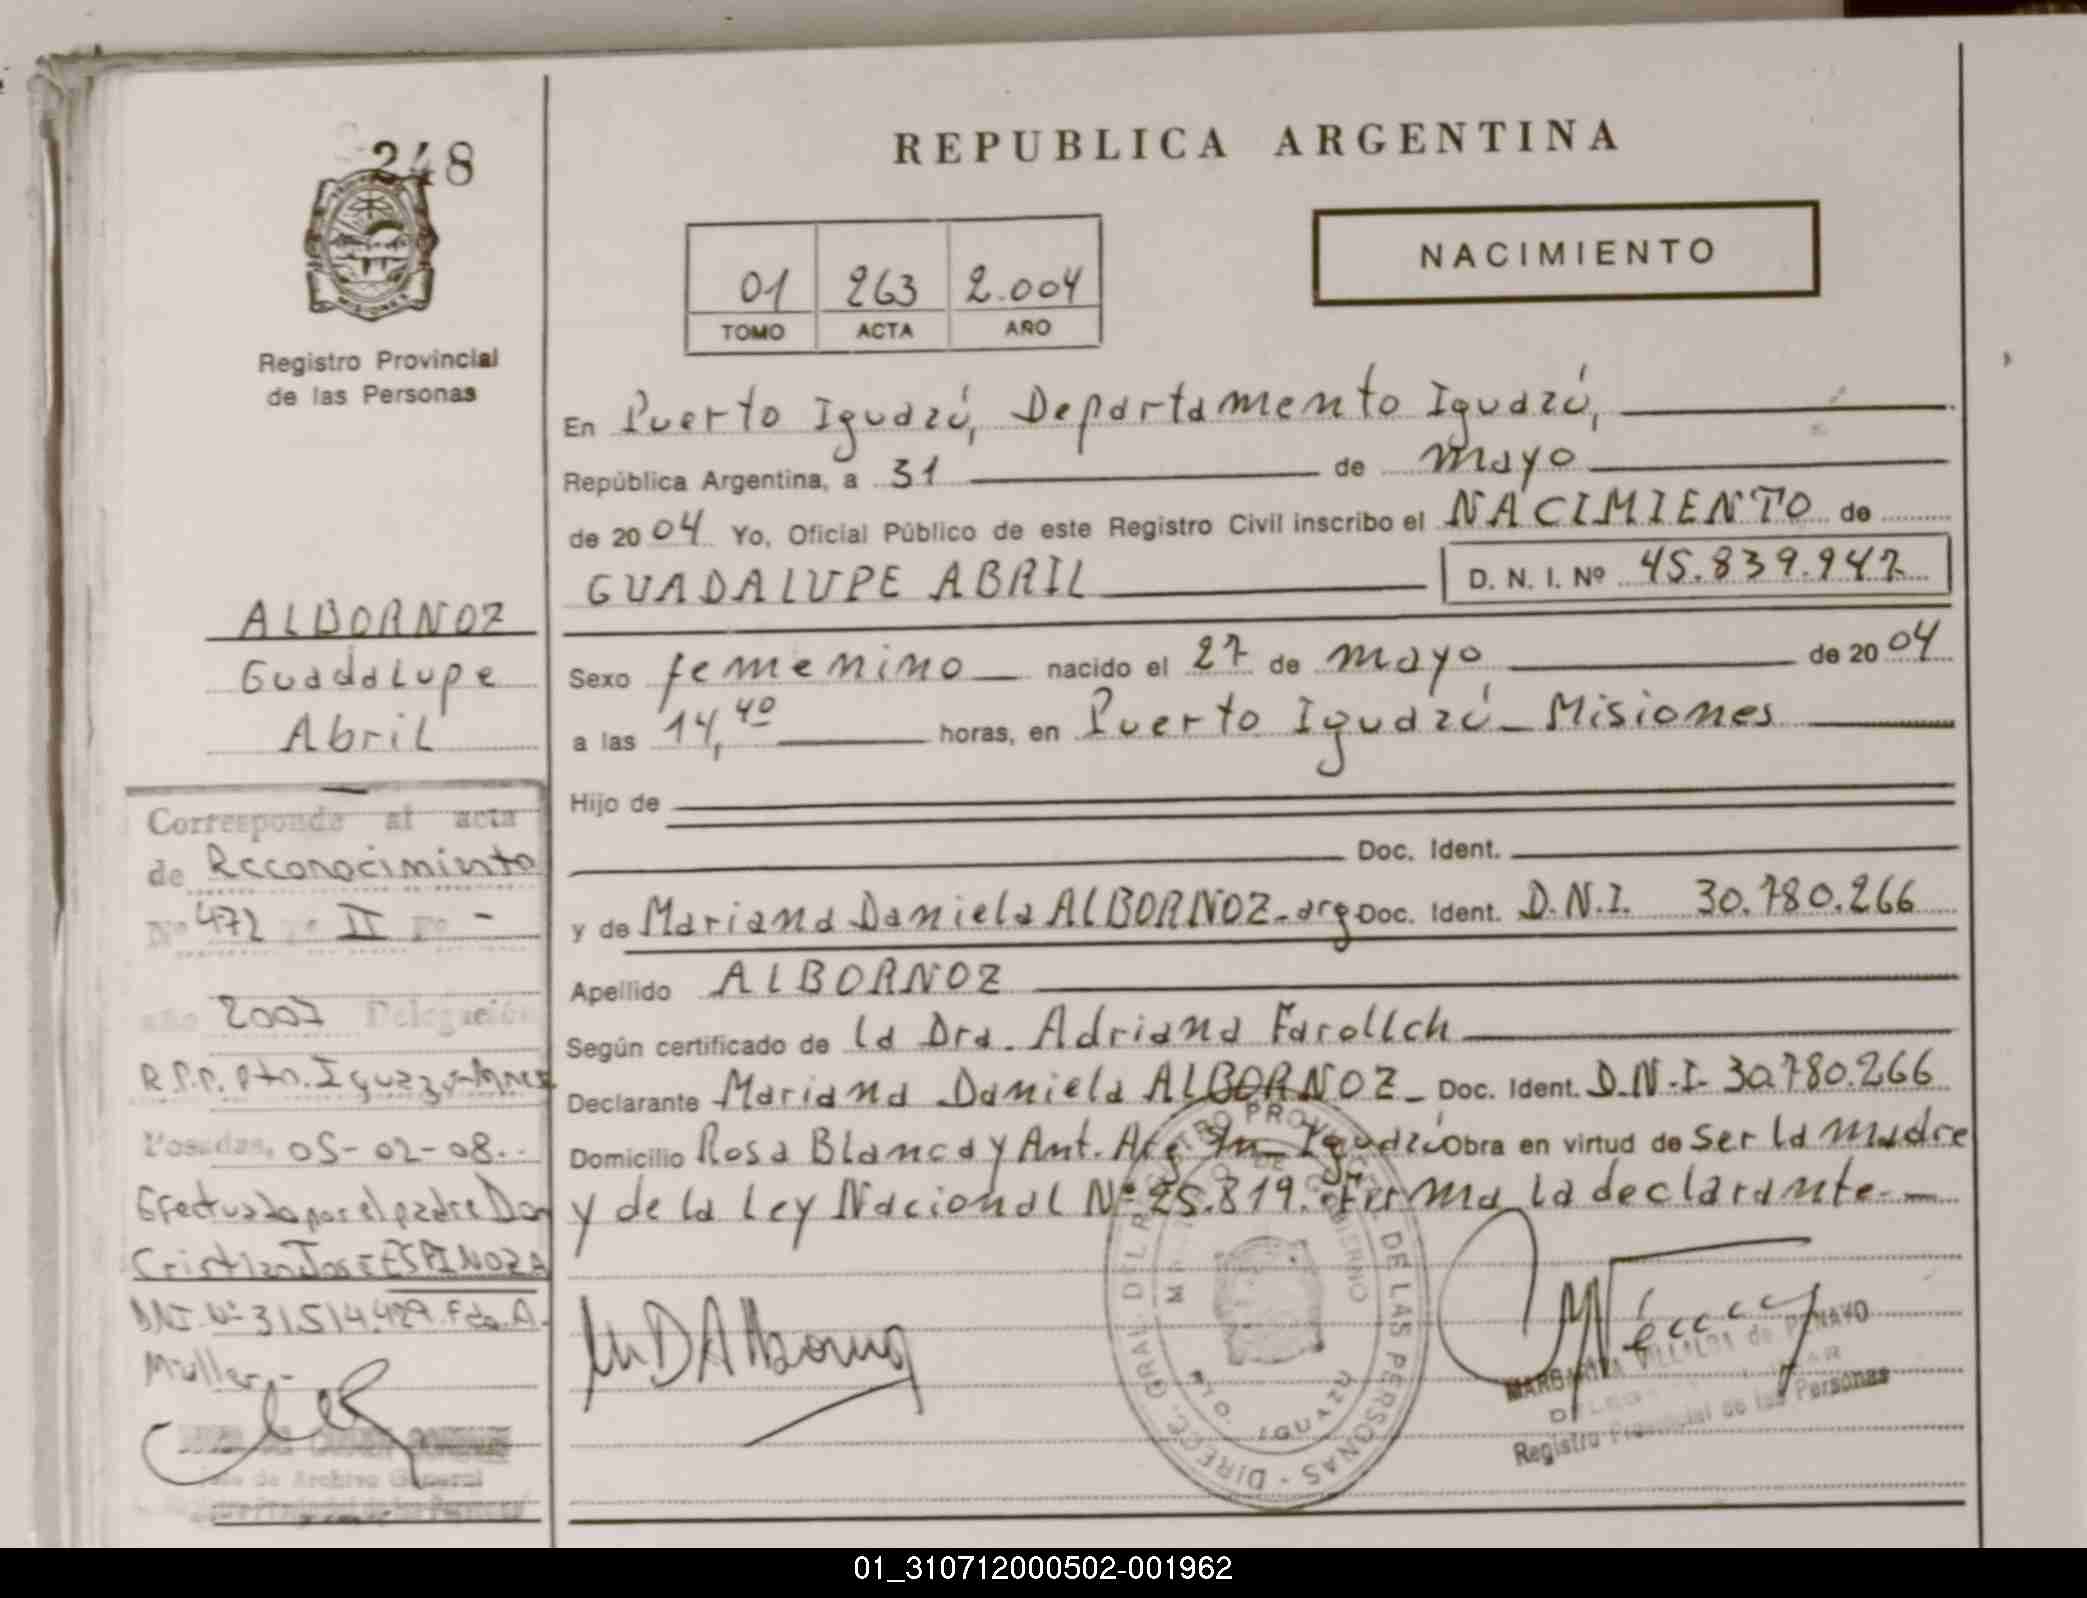 248
Registro Provincial
de las Personas
ALBORNOZ
Guadalupe
Abril
Corresponde al acta
de Reconocimiento
Nº 472 Tº II Fº -
año 2007 Delegación
R.P.P. Pto. Iguazú-Mnes
Posadas, 05-02-08..
Efectuado por el padre Don
Cristian Jose ESPINOZA
DNI. Nº 31.514.429. Fdo. A.
Muller.-
de Archivo General
REPUBLICA ARGENTINA
NACIMIENTO
01 263 2.004
TOMO ACTA AÑO
En Puerto Iguazú, Departamento Iguazú,
República Argentina, a 31 de mayo
de 2004 Yo, Oficial Público de este Registro Civil inscribo el NACIMIENTO de
GUADALUPE ABRIL D. N. I. Nº 45.839.947
Sexo femenino nacido el 27 de mayo de 2004
a las 14,40 horas, en Puerto Iguazú - Misiones
Hijo de
Doc. Ident.
y de Mariana Daniela ALBORNOZ-arg Doc. Ident. D.N.I. 30.780.266
Apellido ALBORNOZ
Según certificado de la Dra. Adriana Farollch
Declarante Mariana Daniela ALBORNOZ - Doc. Ident. D.N.I. 30.780.266
Domicilio Rosa Blanca y Ant. Arg. Iguazú Obra en virtud de ser la madre
y de la Ley Nacional Nº 25.819. Firma la declarante.-
MDAlbornoz
DIREC. GRAL. DEL REGISTRO PROVINCIAL DE LAS PERSONAS
PTO. IGUAZU
MARGARITA VILLALBA de PENAYO
Registro Provincial de las Personas
01_310712000502-001962